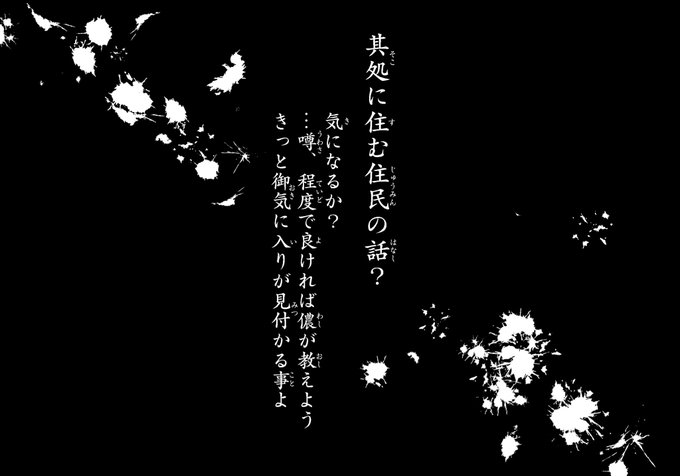 其処に住む住民の話？
気になるか？
…噂、程度で良ければ儂が教えよう
きっと御気に入りが見付かる事よ